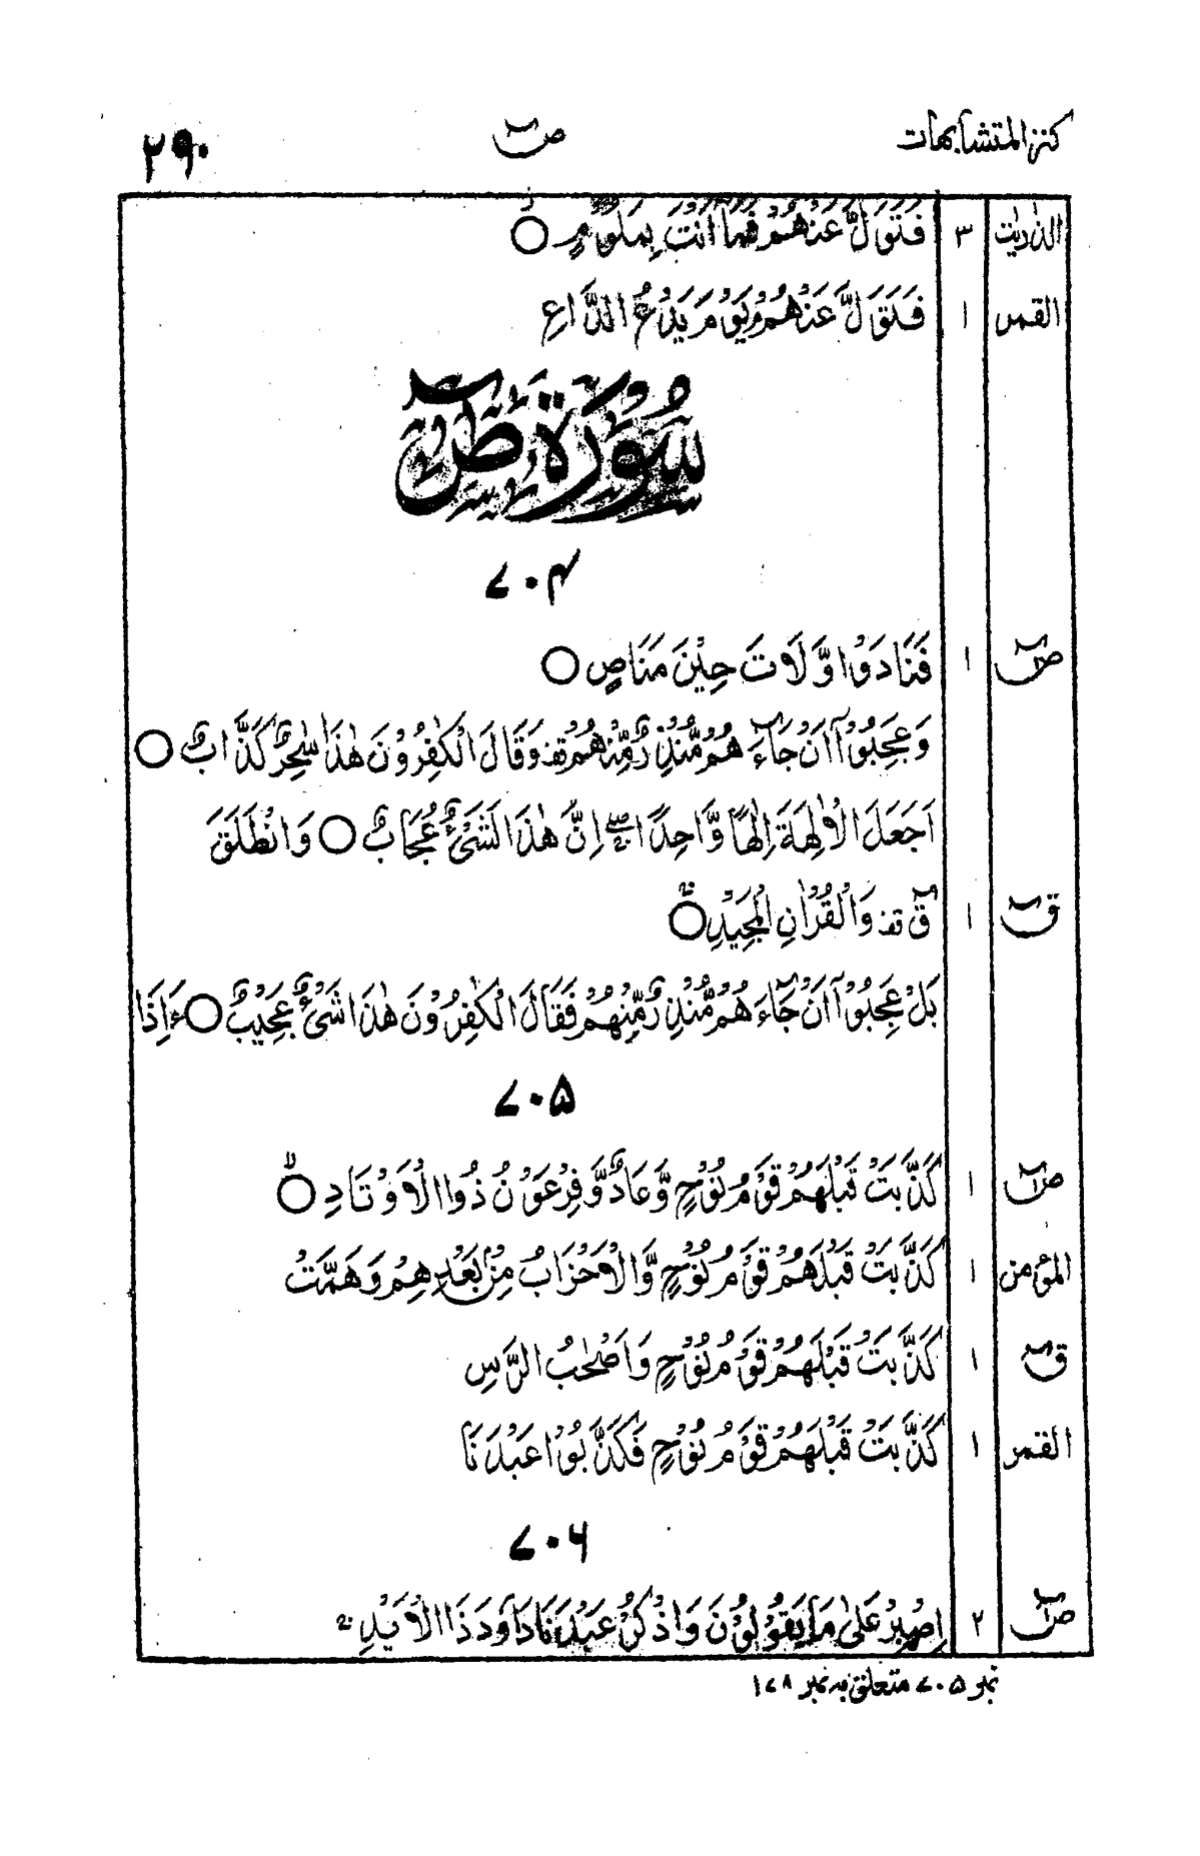 كنز المتشابهات صٓ ۲۹۰
الذّٰريٰت ۳ فَتَوَلَّ عَنْهُمْ فَمَآ اَنْتَ بِمَلُوْمٍ ○
القمر ۱ فَتَوَلَّ عَنْهُمْ يَوْمَ يَدْعُ الدَّاعِ
سُوْرَةُ صٓ
۷۰۴
صٓ ۱ فَنَادَوْا وَّلَاتَ حِيْنَ مَنَاصٍ ○
وَعَجِبُوْٓا اَنْ جَآءَهُمْ مُّنْذِرٌ مِّنْهُمْ قف وَقَالَ الْكٰفِرُوْنَ هٰذَا سٰحِرٌ كَذَّابٌ ○
اَجَعَلَ الْاٰلِهَةَ اِلٰهًا وَّاحِدًا صلے اِنَّ هٰذَا لَشَیْءٌ عُجَابٌ ○ وَانْطَلَقَ
قٓ ۱ قٓ قف وَالْقُرْاٰنِ الْمَجِيْدِ ○
بَلْ عَجِبُوْٓا اَنْ جَآءَهُمْ مُّنْذِرٌ مِّنْهُمْ فَقَالَ الْكٰفِرُوْنَ هٰذَا شَیْءٌ عَجِيْبٌ ○ ءَاِذَا
۷۰۵
صٓ ۱ كَذَّبَتْ قَبْلَهُمْ قَوْمُ نُوْحٍ وَّعَادٌ وَّفِرْعَوْنُ ذُوا الْاَوْتَادِ ○
المؤمن ۱ كَذَّبَتْ قَبْلَهُمْ قَوْمُ نُوْحٍ وَّالْاَحْزَابُ مِنْۢ بَعْدِهِمْ وَهَمَّتْ
قٓ ۱ كَذَّبَتْ قَبْلَهُمْ قَوْمُ نُوْحٍ وَاَصْحٰبُ الرَّسِّ
القمر ۱ كَذَّبَتْ قَبْلَهُمْ قَوْمُ نُوْحٍ فَكَذَّبُوْا عَبْدَنَا
۷۰۶
صٓ ۲ اِصْبِرْ عَلٰی مَا يَقُوْلُوْنَ وَاذْكُرْ عَبْدَنَا دَاوٗدَ ذَا الْاَيْدِ ج
نمبر ۷۰۵ متعلق بہ نمبر ۱۷۸